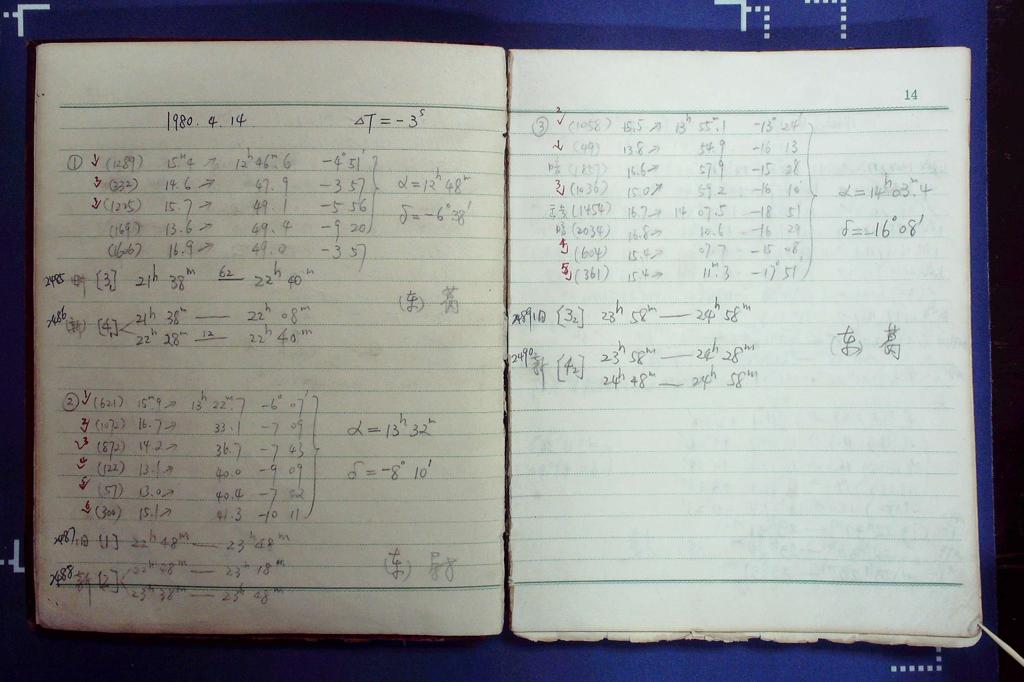 1980. 4. 14 ΔT = -3ˢ
① (1289) 15ᵐ4 ↗ 12ʰ46ᵐ.6 -4°51′
(332) 14.6 ↗ 47.9 -3 57 α=12ʰ48ᵐ
(1225) 15.7 ↗ 49.1 -5 56 δ=-6°38′
(169) 13.6 ↗ 49.4 -9 20
(1606) 16.9 ↗ 49.0 -3 57
2485 [3₁] 21ʰ 38ᵐ —62— 22ʰ 40ᵐ
(东) 葛
2486 (新) [4₁] 21ʰ 38ᵐ — 22ʰ 08ᵐ
22ʰ 28ᵐ —12— 22ʰ 40ᵐ
② 1 (621) 15ᵐ9 ↗ 13ʰ 22ᵐ.7 -6° 07′
2 (1072) 16.7 ↗ 33.1 -7 09 α=13ʰ32ᵐ
3 (872) 14.2 ↗ 36.7 -7 43
4 (122) 13.1 ↗ 40.0 -9 09 δ=-8° 10′
5 (57) 13.0 ↗ 40.4 -7 22
6 (300) 15.1 ↗ 41.3 -10 11
2487 旧 [1] 22ʰ48ᵐ — 23ʰ48ᵐ
(东)
2488 新 [2] 22ʰ48ᵐ — 23ʰ18ᵐ
23ʰ38ᵐ — 23ʰ48ᵐ
14
③ 2 (1058) 15.5 ↗ 13ʰ 55ᵐ.1 -13° 24′
1 (49) 13.8 ↗ 54.9 -16 13
暗 (1857) 16.6 ↗ 57.9 -15 28
3 (1036) 15.0 ↗ 59.2 -16 10 α=14ʰ03ᵐ.4
(1454) 16.7 ↗ 14 07.5 -18 51
暗 (2034) 16.8 ↗ 10.6 -16 29 δ=-16°08′
4 (604) 15.4 ↗ 07.7 -15 08
5 (361) 15.4 ↗ 11ᵐ.3 -17°51′
2489 旧 [3₂] 23ʰ 58ᵐ — 24ʰ 58ᵐ
(东) 葛
2490 新 [4₂] 23ʰ 58ᵐ — 24ʰ 28ᵐ
24ʰ 48ᵐ — 24ʰ 58ᵐ